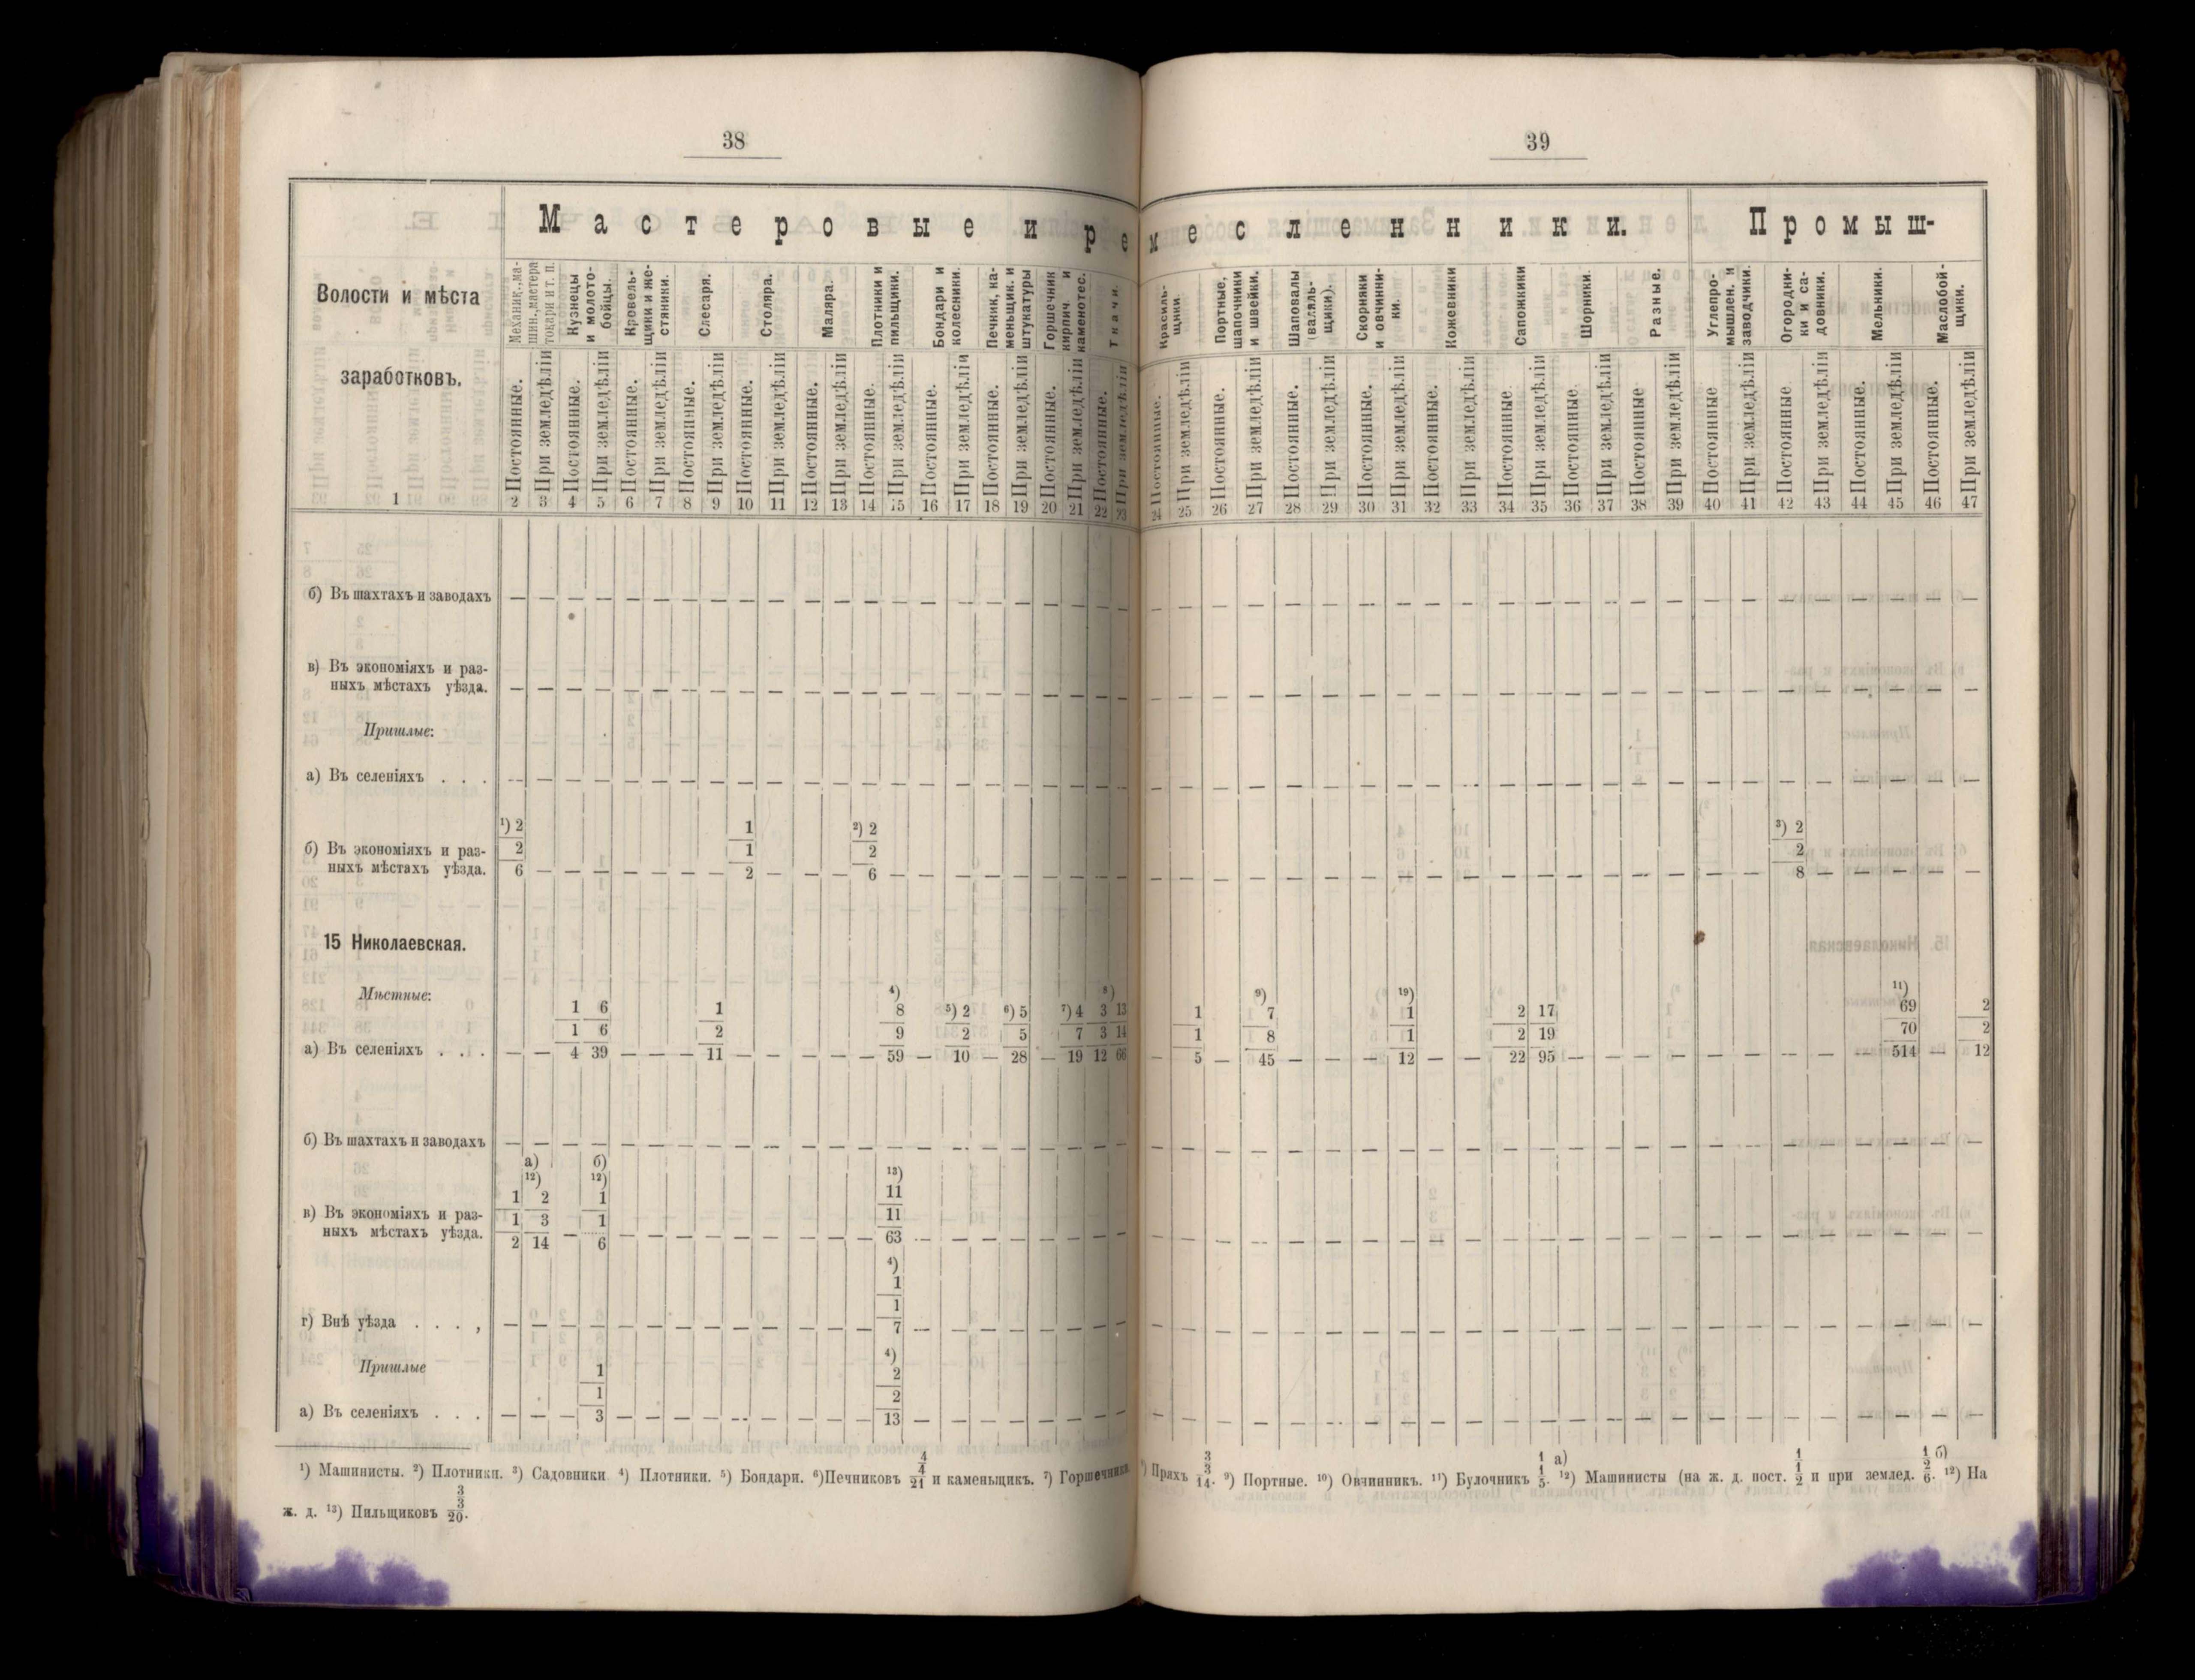 38
Мастеровые и ре
Волости и мѣста
заработковъ.
Механик., машин., мастера токари и т. п.
Кузнецы и молото-бойцы.
Кровель-щики и же-стяники.
Слесаря.
Столяра.
Маляра.
Плотники и пильщики.
Бондари и колесники.
Печник, ка-меньщик. и штукатуры
Горшечник кирпич. и каменотес.
Ткачи.
Постоянные. При земледѣліи Постоянные. При земледѣліи Постоянные. При земледѣліи Постоянные. При земледѣліи Постоянные. При земледѣліи Постоянные. При земледѣліи Постоянные. При земледѣліи Постоянные. При земледѣліи Постоянные. При земледѣліи Постоянные. При земледѣліи Постоянные. При земледѣліи
1 2 3 4 5 6 7 8 9 10 11 12 13 14 15 16 17 18 19 20 21 22 23
б) Въ шахтахъ и заводахъ — — — — — — — — — — — — — — — — — — — — — —
в) Въ экономіяхъ и раз-
ныхъ мѣстахъ уѣзда. — — — — — — — — — — — — — — — — — — — — — —
Пришлые:
а) Въ селеніяхъ . . . — — — — — — — — — — — — — — — — — — — — — —
¹) 2 1 ²) 2
б) Въ экономіяхъ и раз- 2 1 2
ныхъ мѣстахъ уѣзда. 6 — — — — — — — 2 — — — 6 — — — — — — — — —
15 Николаевская.
Мѣстные: ⁴) ⁸)
1 6 1 8 ⁵) 2 ⁶) 5 ⁷) 4 3 13
1 6 2 9 2 5 7 3 14
а) Въ селеніяхъ . . . — — 4 39 — — — 11 — — — — — 59 — 10 — 28 — 19 12 66
б) Въ шахтахъ и заводахъ — — — — — — — — — — — — — — — — — — — — — —
а) б)
¹²) ¹²) ¹³)
1 2 1 11
в) Въ экономіяхъ и раз- 1 3 1 11
ныхъ мѣстахъ уѣзда. 2 14 — 6 — — — — — — — — — 63 — — — — — — — —
⁴)
1
1
г) Внѣ уѣзда . . . , — — — — — — — — — — — — — 7 — — — — — — — —
Пришлые ⁴)
1 2
1 2
а) Въ селеніяхъ . . . — — — 3 — — — — — — — — — 13 — — — — — — — —
¹) Машинисты. ²) Плотники. ³) Садовники ⁴) Плотники. ⁵) Бондари. ⁶) Печниковъ 4/4/21 и каменьщикъ. ⁷) Горшечники.
ж. д. ¹³) Пильщиковъ 3/3/20.
39
месленники.
Промыш-
Красиль-щики.
Портные, шапочники и швейки.
Шаповалы (валяль-щики).
Скорняки и овчинни-ки.
Кожевники
Сапожники
Шорники.
Разные.
Углепро-мышлен. и заводчики.
Огородни-ки и са-довники.
Мельники.
Маслобой-щики.
Постоянные. При земледѣліи Постоянные. При земледѣліи Постоянные. При земледѣліи Постоянные. При земледѣліи Постоянные. При земледѣліи Постоянные При земледѣліи Постоянные При земледѣліи Постоянные При земледѣліи Постоянные При земледѣліи Постоянные При земледѣліи Постоянные. При земледѣліи Постоянные. При земледѣліи
24 25 26 27 28 29 30 31 32 33 34 35 36 37 38 39 40 41 42 43 44 45 46 47
— — — — — — — — — — — — — — — — — — — — — — — —
— — — — — — — — — — — — — — — — — — — — — — — —
— — — — — — — — — — — — — — — — — — — — — — — —
³) 2
2
— — — — — — — — — — — — — — — — — — 8 — — — — —
⁹) ¹⁹) ¹¹)
1 7 1 2 17 69 2
1 8 1 2 19 70 2
— 5 — 45 — — — 12 — — 22 95 — — — — — — — — — 514 — 12
— — — — — — — — — — — — — — — — — — — — — — — —
— — — — — — — — — — — — — — — — — — — — — — — —
— — — — — — — — — — — — — — — — — — — — — — — —
— — — — — — — — — — — — — — — — — — — — — — — —
⁸) Пряхъ 3/3/14. ⁹) Портные. ¹⁰) Овчинникъ. ¹¹) Булочникъ 1/1/5. а) ¹²) Машинисты (на ж. д. пост. 1/1/2 и при землед. 1/2/6. б) ¹²) На